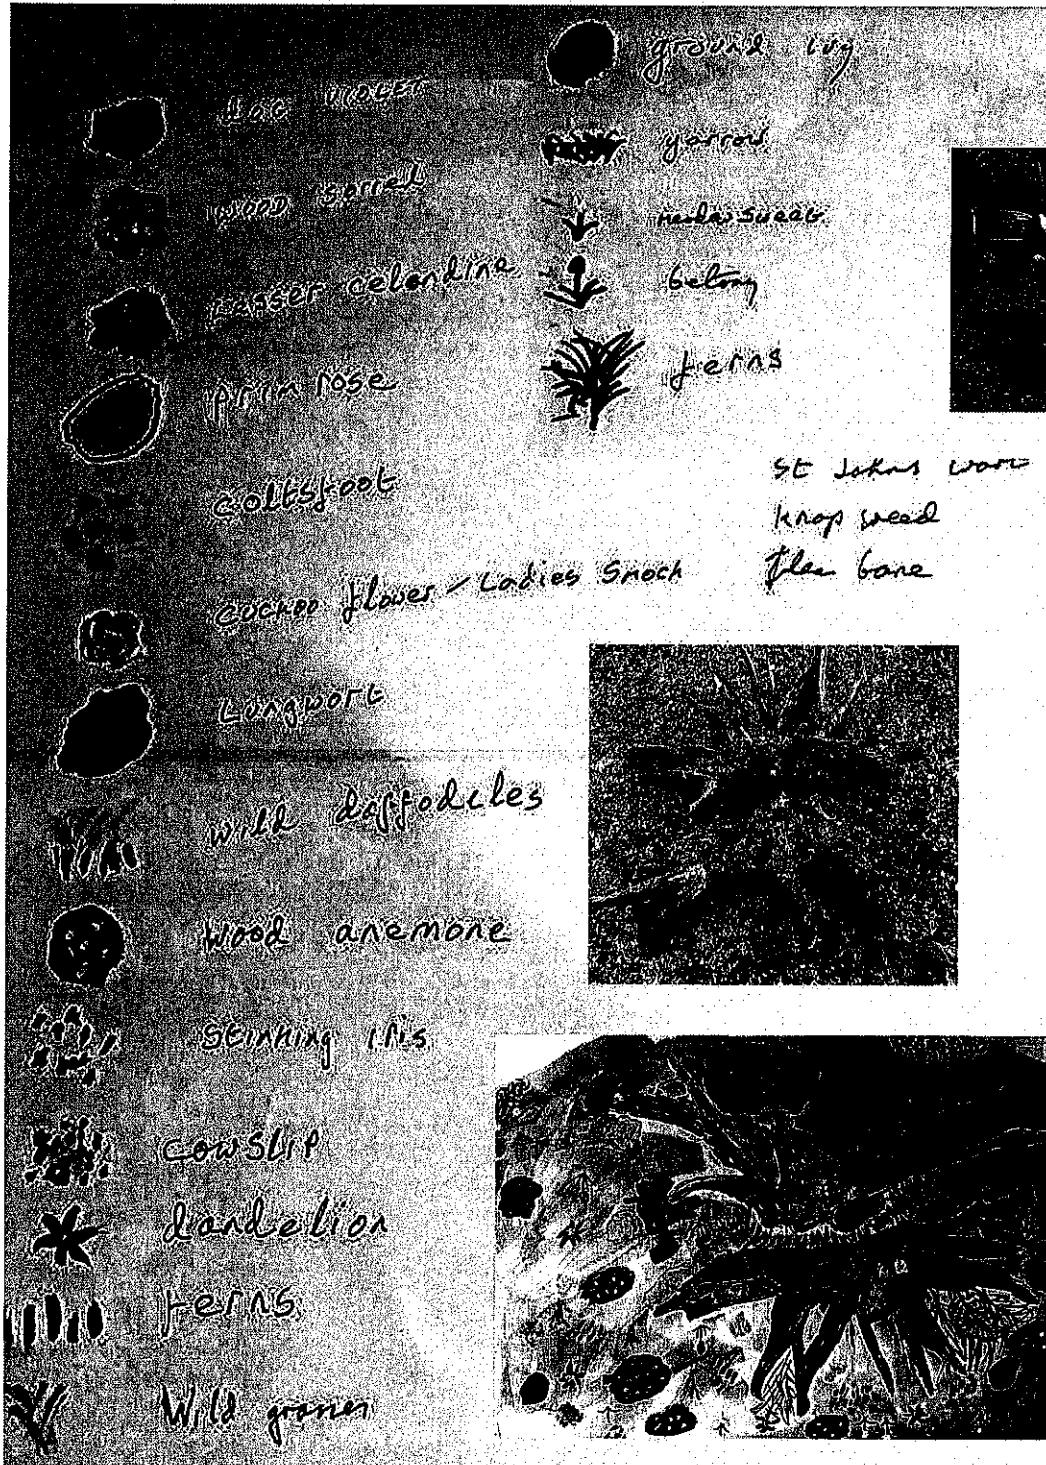 dog violet
wood sorrel
Lesser celendine
prim rose
coltsfoot
cuckoo flower / Ladies Smock
Lungwort
wild daffodiles
wood anemone
Stinking iris
cowslip
dandelion
ferns
Wild grasses
ground ivy
yarrow
meadowsweet
betony
ferns
St Johns wort
knap weed
flea bane